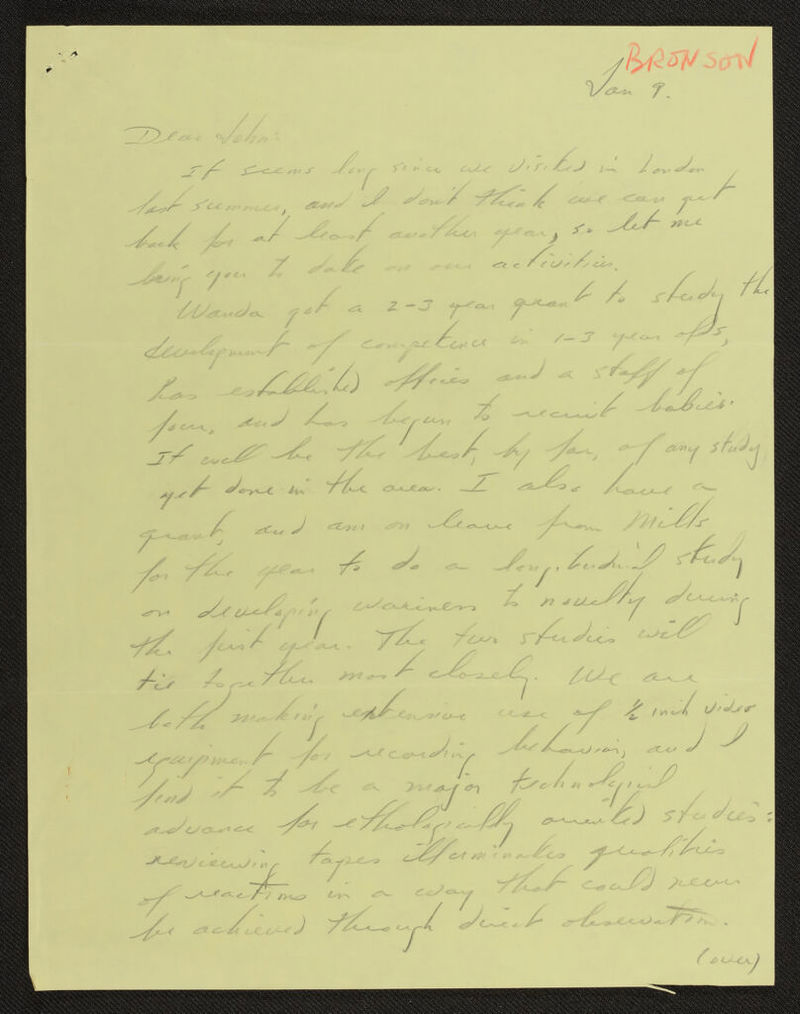 BRONSON
Jan 9.
Dear John:
It seems long since we visited in London
last summer, and I don't think we can get
back for at least another year, so let me
bring you to date on our activities.
Wanda got a 2-3 year grant to study the
development of competence in 1-3 year olds,
has established offices and a staff of
four, and has begun to recruit babies.
It will be the best, by far, of any study
yet done in the area. I also have a
grant, and am on leave from Mills
for the year to do a longitudinal study
on developing wariness to novelty during
the first year. The two studies will
tie together most closely. We are
both making extensive use of ½ inch video
equipment for recording behavior, and I
find it to be a major technological
advance for ethologically oriented studies:
reviewing tapes illuminates qualities
of reactions in a way that could never
be achieved through direct observation.
(over)